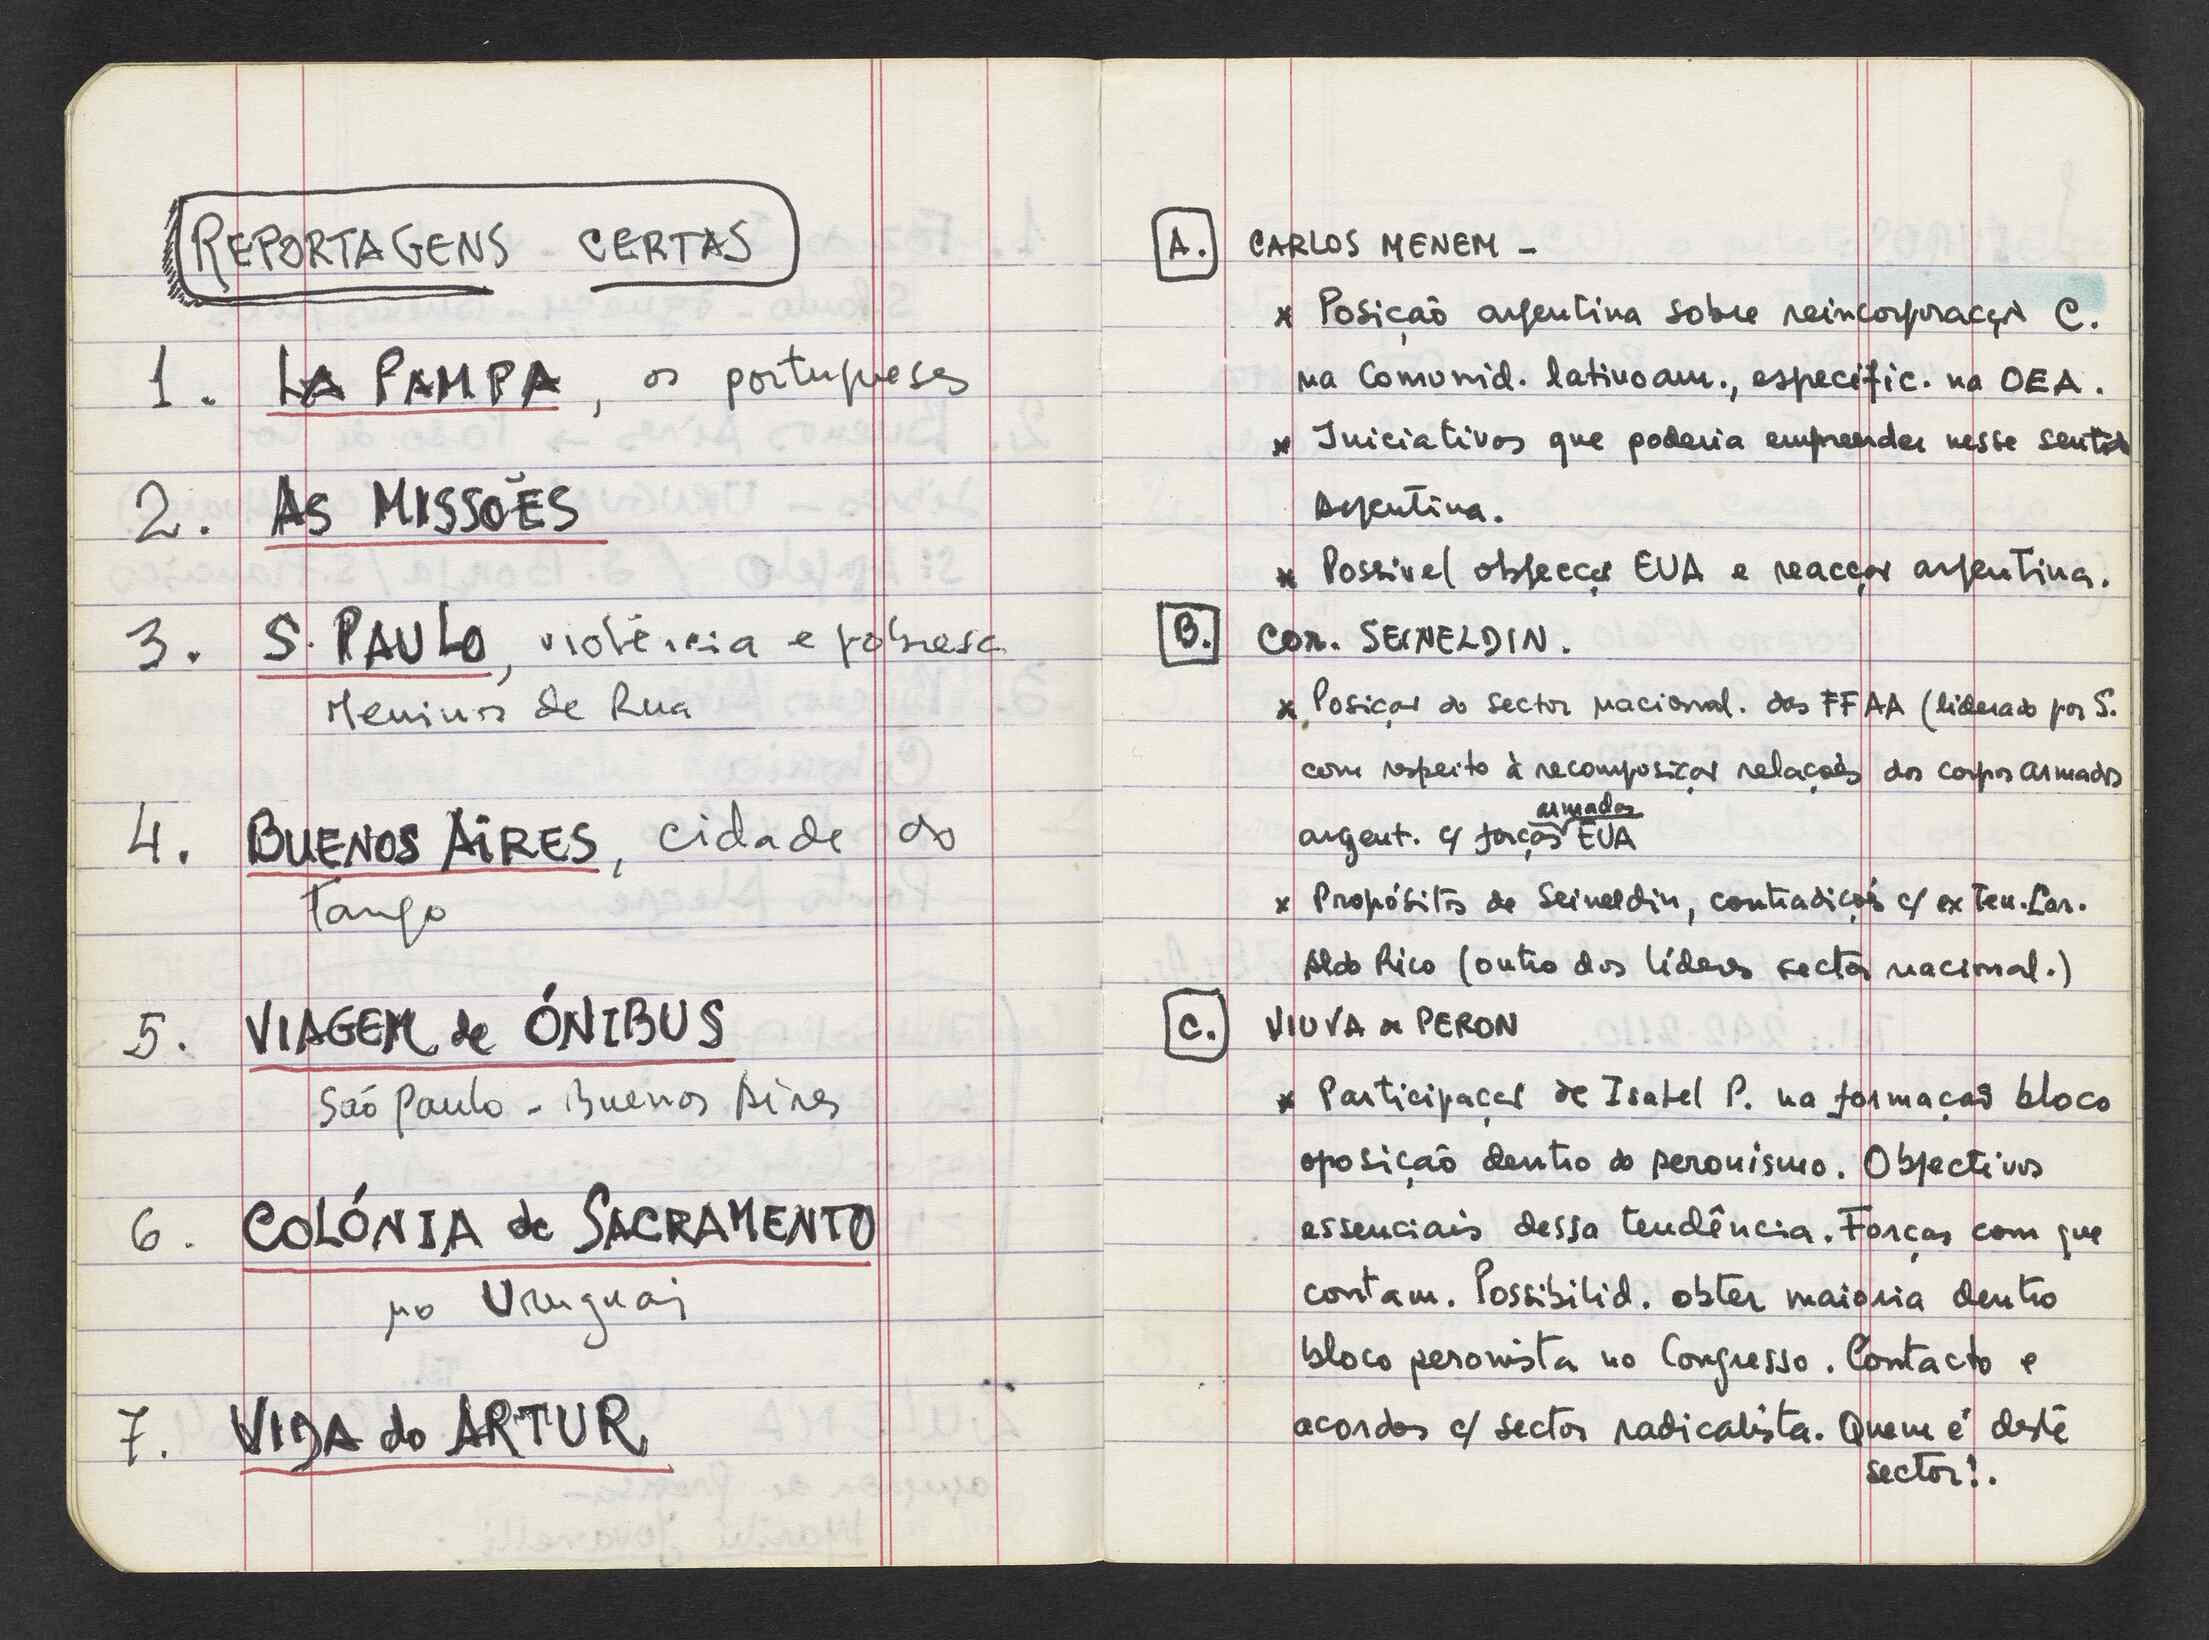 REPORTAGENS CERTAS
1. LA PAMPA, os portugueses
2. AS MISSÕES
3. S. PAULO, violência e pobresa
Meninos de Rua
4. BUENOS AIRES, cidade do
Tango
5. VIAGEM de ÓNIBUS
São Paulo - Buenos Aires
6. COLÓNIA de SACRAMENTO
no Uruguai
7. VIDA do ARTUR
A. CARLOS MENEM -
* Posição argentina sobre reincorporação C.
na Comunid. latinoam., específic. na OEA.
* Iniciativas que poderia empreender nesse sentido
Argentina.
* Possivel objecção EUA e reacção argentina.
B. Cor. SEINELDIN.
* Posição do sector nacional. das FFAA (liderado por S.
com respeito à recomposição relações dos corpos armados
argent. c/ forças armadas EUA
* Propósitos de Seineldin, contradições c/ ex Ten. Cor.
Aldo Rico (outro dos líderes sector nacional.)
C. VIUVA de PERON
* Participação de Isabel P. na formação bloco
oposição dentro do peronismo. Objectivos
essenciais dessa tendência. Forças com que
contam. Possibilid. obter maioria dentro
bloco peronista no Congresso. Contacto e
acordos c/ sector radicalista. Quem é deste
sector?.